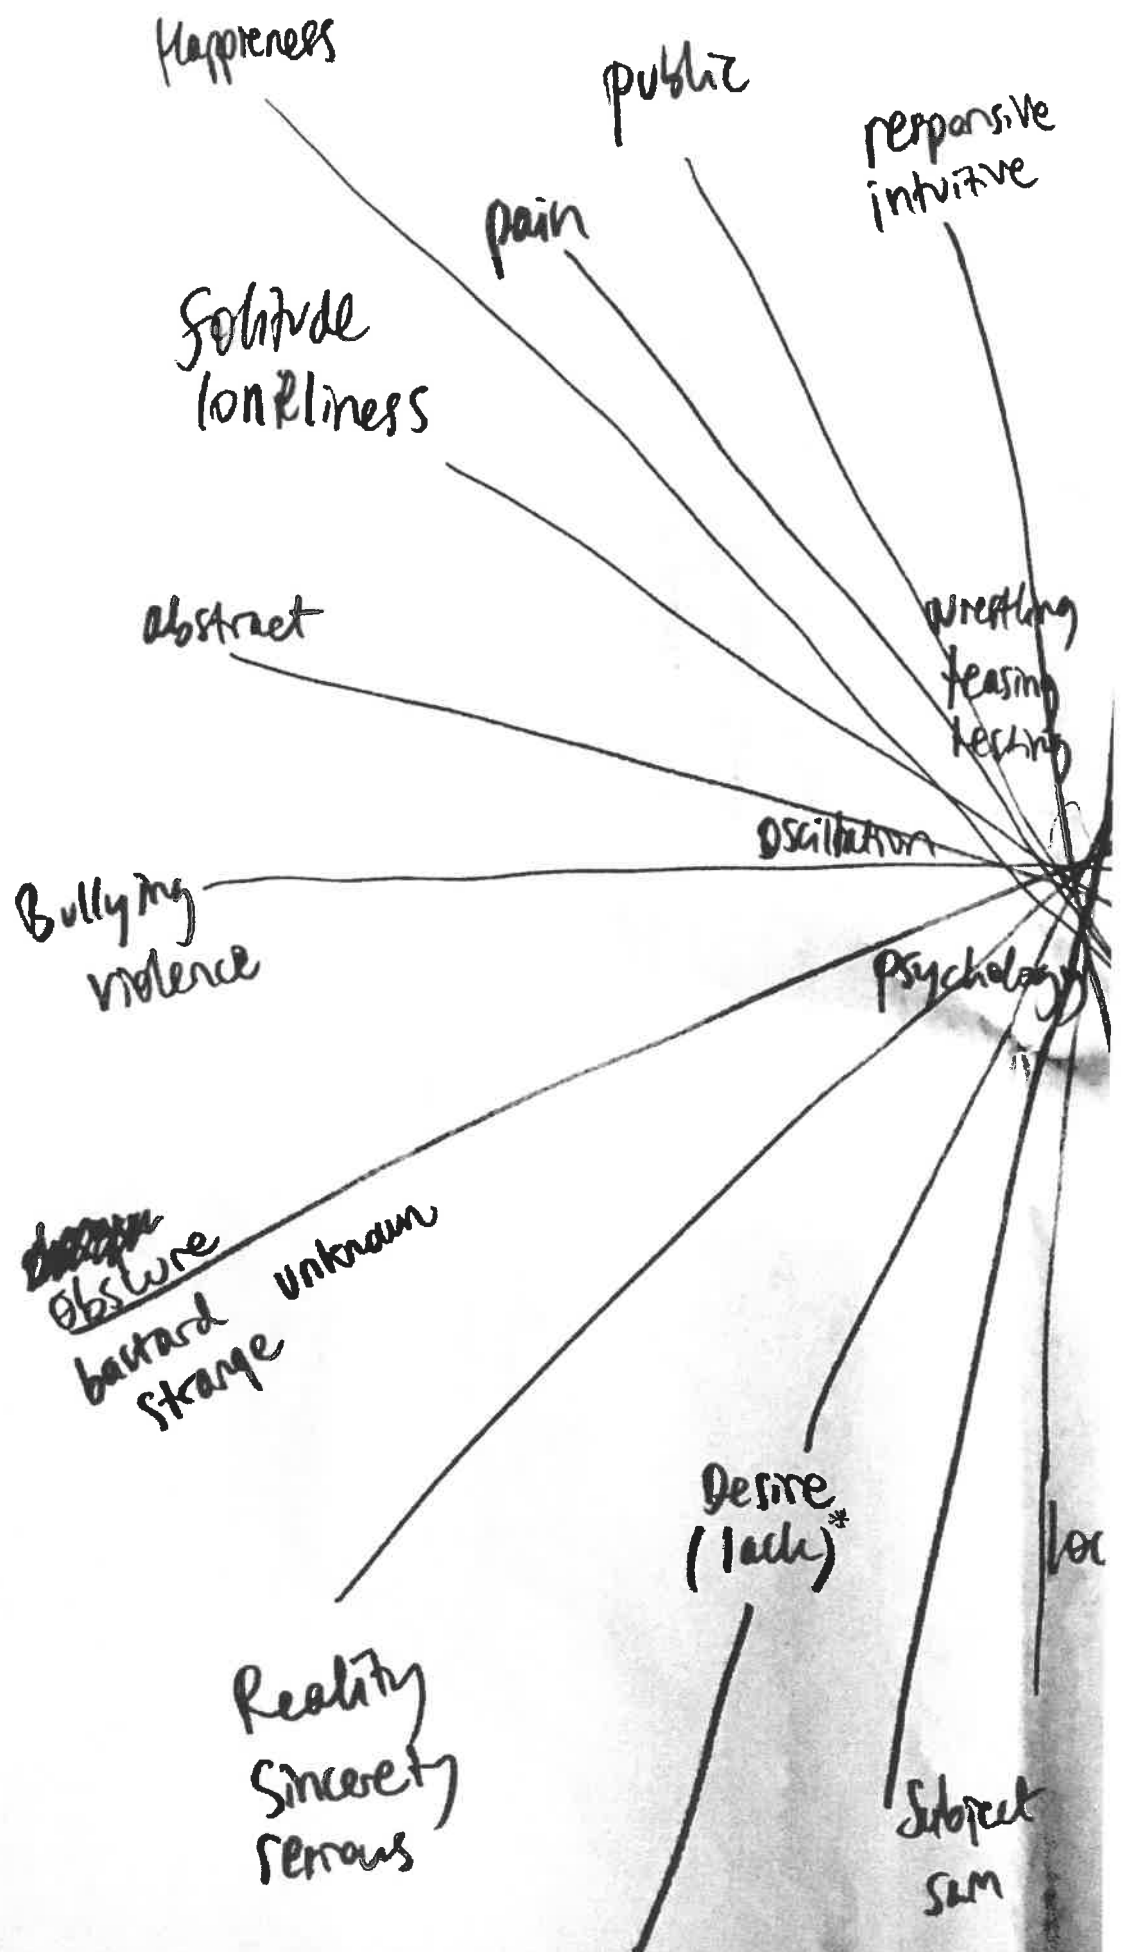 Happieness
public
responsive
intuitive
pain
Solitude
loneliness
abstract
wrestling
teasing
testing
oscillation
Bullying
violence
psychology
obscure
unknown
bastard
strange
Desire
(lack)*
Reality
Sincerety
serious
Subject
sum